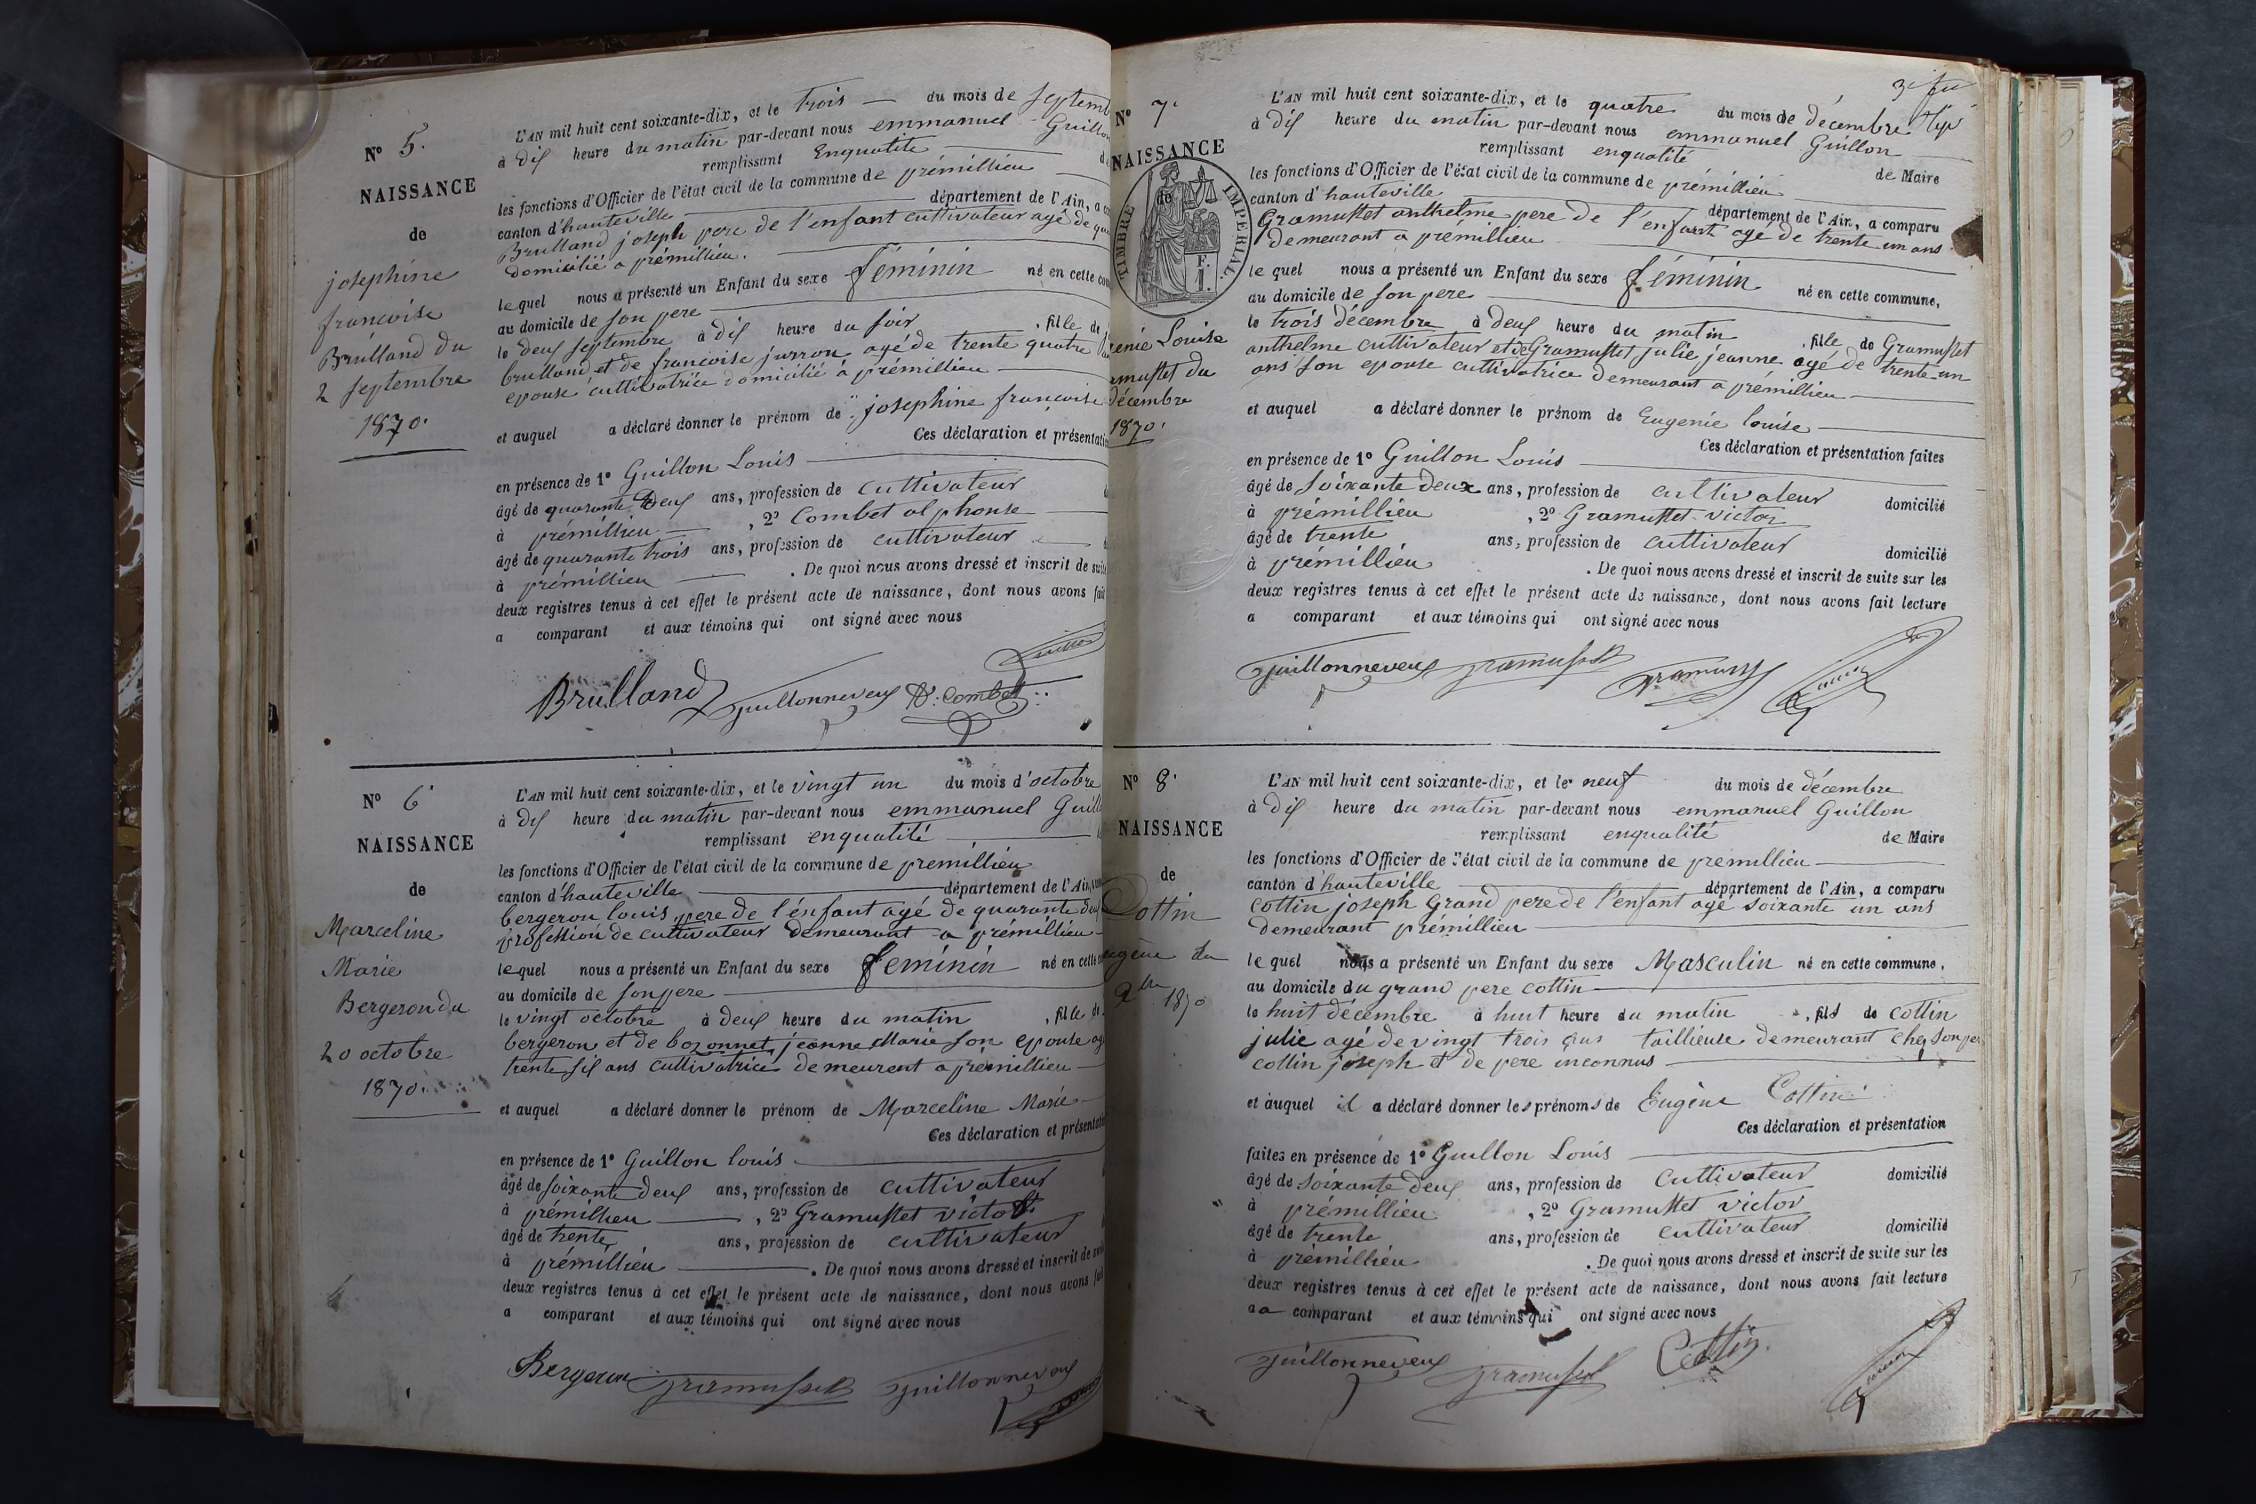 Nº 5.
NAISSANCE
de
josephine
francoise
Brulland du
2 septembre
1870.
L'AN mil huit cent soixante-dix, et le trois du mois de septemb
à dix heure du matin par-devant nous emmanuel Guillon
remplissant enqualité
les fonctions d'Officier de l'état civil de la commune de prémillieu
canton d'hauteville département de l'Ain, a
Brulland joseph pere de l'enfant cultivateur agé de
Domicilié a prémillieu.
lequel nous a présenté un Enfant du sexe féminin né en cette
au domicile de son pere
le deux septembre à dix heure du soir , fille de
brulland et de francoise juron agé de trente quatre
epouse cultivatrice domicilié a prémillieu
et auquel a déclaré donner le prénom de josephine francoise
Ces déclaration et présentati
en présence de 1º Guillon Louis
âgé de quarante deux ans, profession de cultivateur
à prémillieu , 2º Combet alphonse
âgé de quarante trois ans, profession de cultivateur
à prémillieu . De quoi nous avons dressé et inscrit de suite
deux registres tenus à cet effet le présent acte de naissance, dont nous avons fait
a comparant et aux témoins qui ont signé avec nous
Brulland guillonneveux A. Combet Guillon
Nº 6
NAISSANCE
de
Marceline
Marie
Bergeron du
20 octobre
1870.
L'AN mil huit cent soixante-dix, et le vingt un du mois d'octobre
à dix heure du matin par-devant nous emmanuel Guill
remplissant enqualité
les fonctions d'Officier de l'état civil de la commune de premillieu
canton d'hauteville département de l'Ain,
bergeron louis pere de l'énfant agé de quarante deux
profession de cultivateur demeurant a prémillieu
lequel nous a présenté un Enfant du sexe féminin né en cette
au domicile de son pere
le vingt octobre à deux heure du matin , fille de
bergeron et de bozonnet jeanne Marie son epouse agé
trente six ans cultivatrice demeurent a prémillieu
et auquel a déclaré donner le prénom de Marceline Marie
Ces déclaration et présentation
en présence de 1º Guillon louis
âgé de soixante deux ans, profession de cultivateur
à prémillieu , 2º Gramusset victor
âgé de trente ans, profession de cultivateur
à prémillieu . De quoi nous avons dressé et inscrit de suite
deux registres tenus à cet effet le présent acte de naissance, dont nous avons fait
a comparant et aux témoins qui ont signé avec nous
Bergeron gramusset guillonneveux
3e
Nº 7.
NAISSANCE
de
TIMBRE IMPERIAL
F.
1.
enie Louise
amusset du
décembre
1870.
L'AN mil huit cent soixante-dix, et le quatre du mois de décembre
à dix heure du matin par-devant nous emmanuel Guillon
remplissant enqualité de Maire
les fonctions d'Officier de l'état civil de la commune de prémillieu
canton d'hauteville département de l'Ain, a comparu
Gramusset anthelme pere de l'enfant agé de trente un ans
demeurant a prémillieu
le quel nous a présenté un Enfant du sexe féminin né en cette commune,
au domicile de son pere
le trois décembre à deux heure du matin , fille de Gramusset
anthelme cultivateur et de Gramusset julie jeanne agé de trente-un
ans son epouse cultivatrice demeurant a prémillieu
et auquel a déclaré donner le prénom de Eugenie louise
Ces déclaration et présentation faites
en présence de 1º Guillon Louis
âgé de soixante deux ans, profession de cultivateur domicilié
à prémillieu , 2º Gramusset victor
âgé de trente ans, profession de cultivateur domicilié
à prémillieu . De quoi nous avons dressé et inscrit de suite sur les
deux registres tenus à cet effet le présent acte de naissance, dont nous avons fait lecture
a comparant et aux témoins qui ont signé avec nous
guillonneveux gramusset
Nº 8.
NAISSANCE
de
Cottin
ugène du
1870
L'AN mil huit cent soixante-dix, et le neuf du mois de décembre
à dix heure du matin par-devant nous emmanuel Guillon
remplissant enqualité de Maire
les fonctions d'Officier de l'état civil de la commune de premillieu
canton d'hauteville département de l'Ain, a comparu
cottin joseph Grand pere de l'enfant agé soixante un ans
demeurant prémillieu
le quel nous a présenté un Enfant du sexe Masculin né en cette commune,
au domicile du grand pere cottin
le huit décembre à huit heure du matin , fils de cottin
julie agé de vingt trois ans taillieuse demeurant chez son per
cottin joseph et de pere inconnus
et auquel il a déclaré donner les prénoms de Eugène Cottin
Ces déclaration et présentation
faites en présence de 1º Guillon Louis
âgé de soixante deux ans, profession de cultivateur domicilié
à prémillieu , 2º Gramusset victor
âgé de trente ans, profession de cultivateur domicilié
à prémillieu . De quoi nous avons dressé et inscrit de suite sur les
deux registres tenus à cet effet le présent acte de naissance, dont nous avons fait lecture
au comparant et aux témoins qui ont signé avec nous
guillonneveux gramusset Cottin